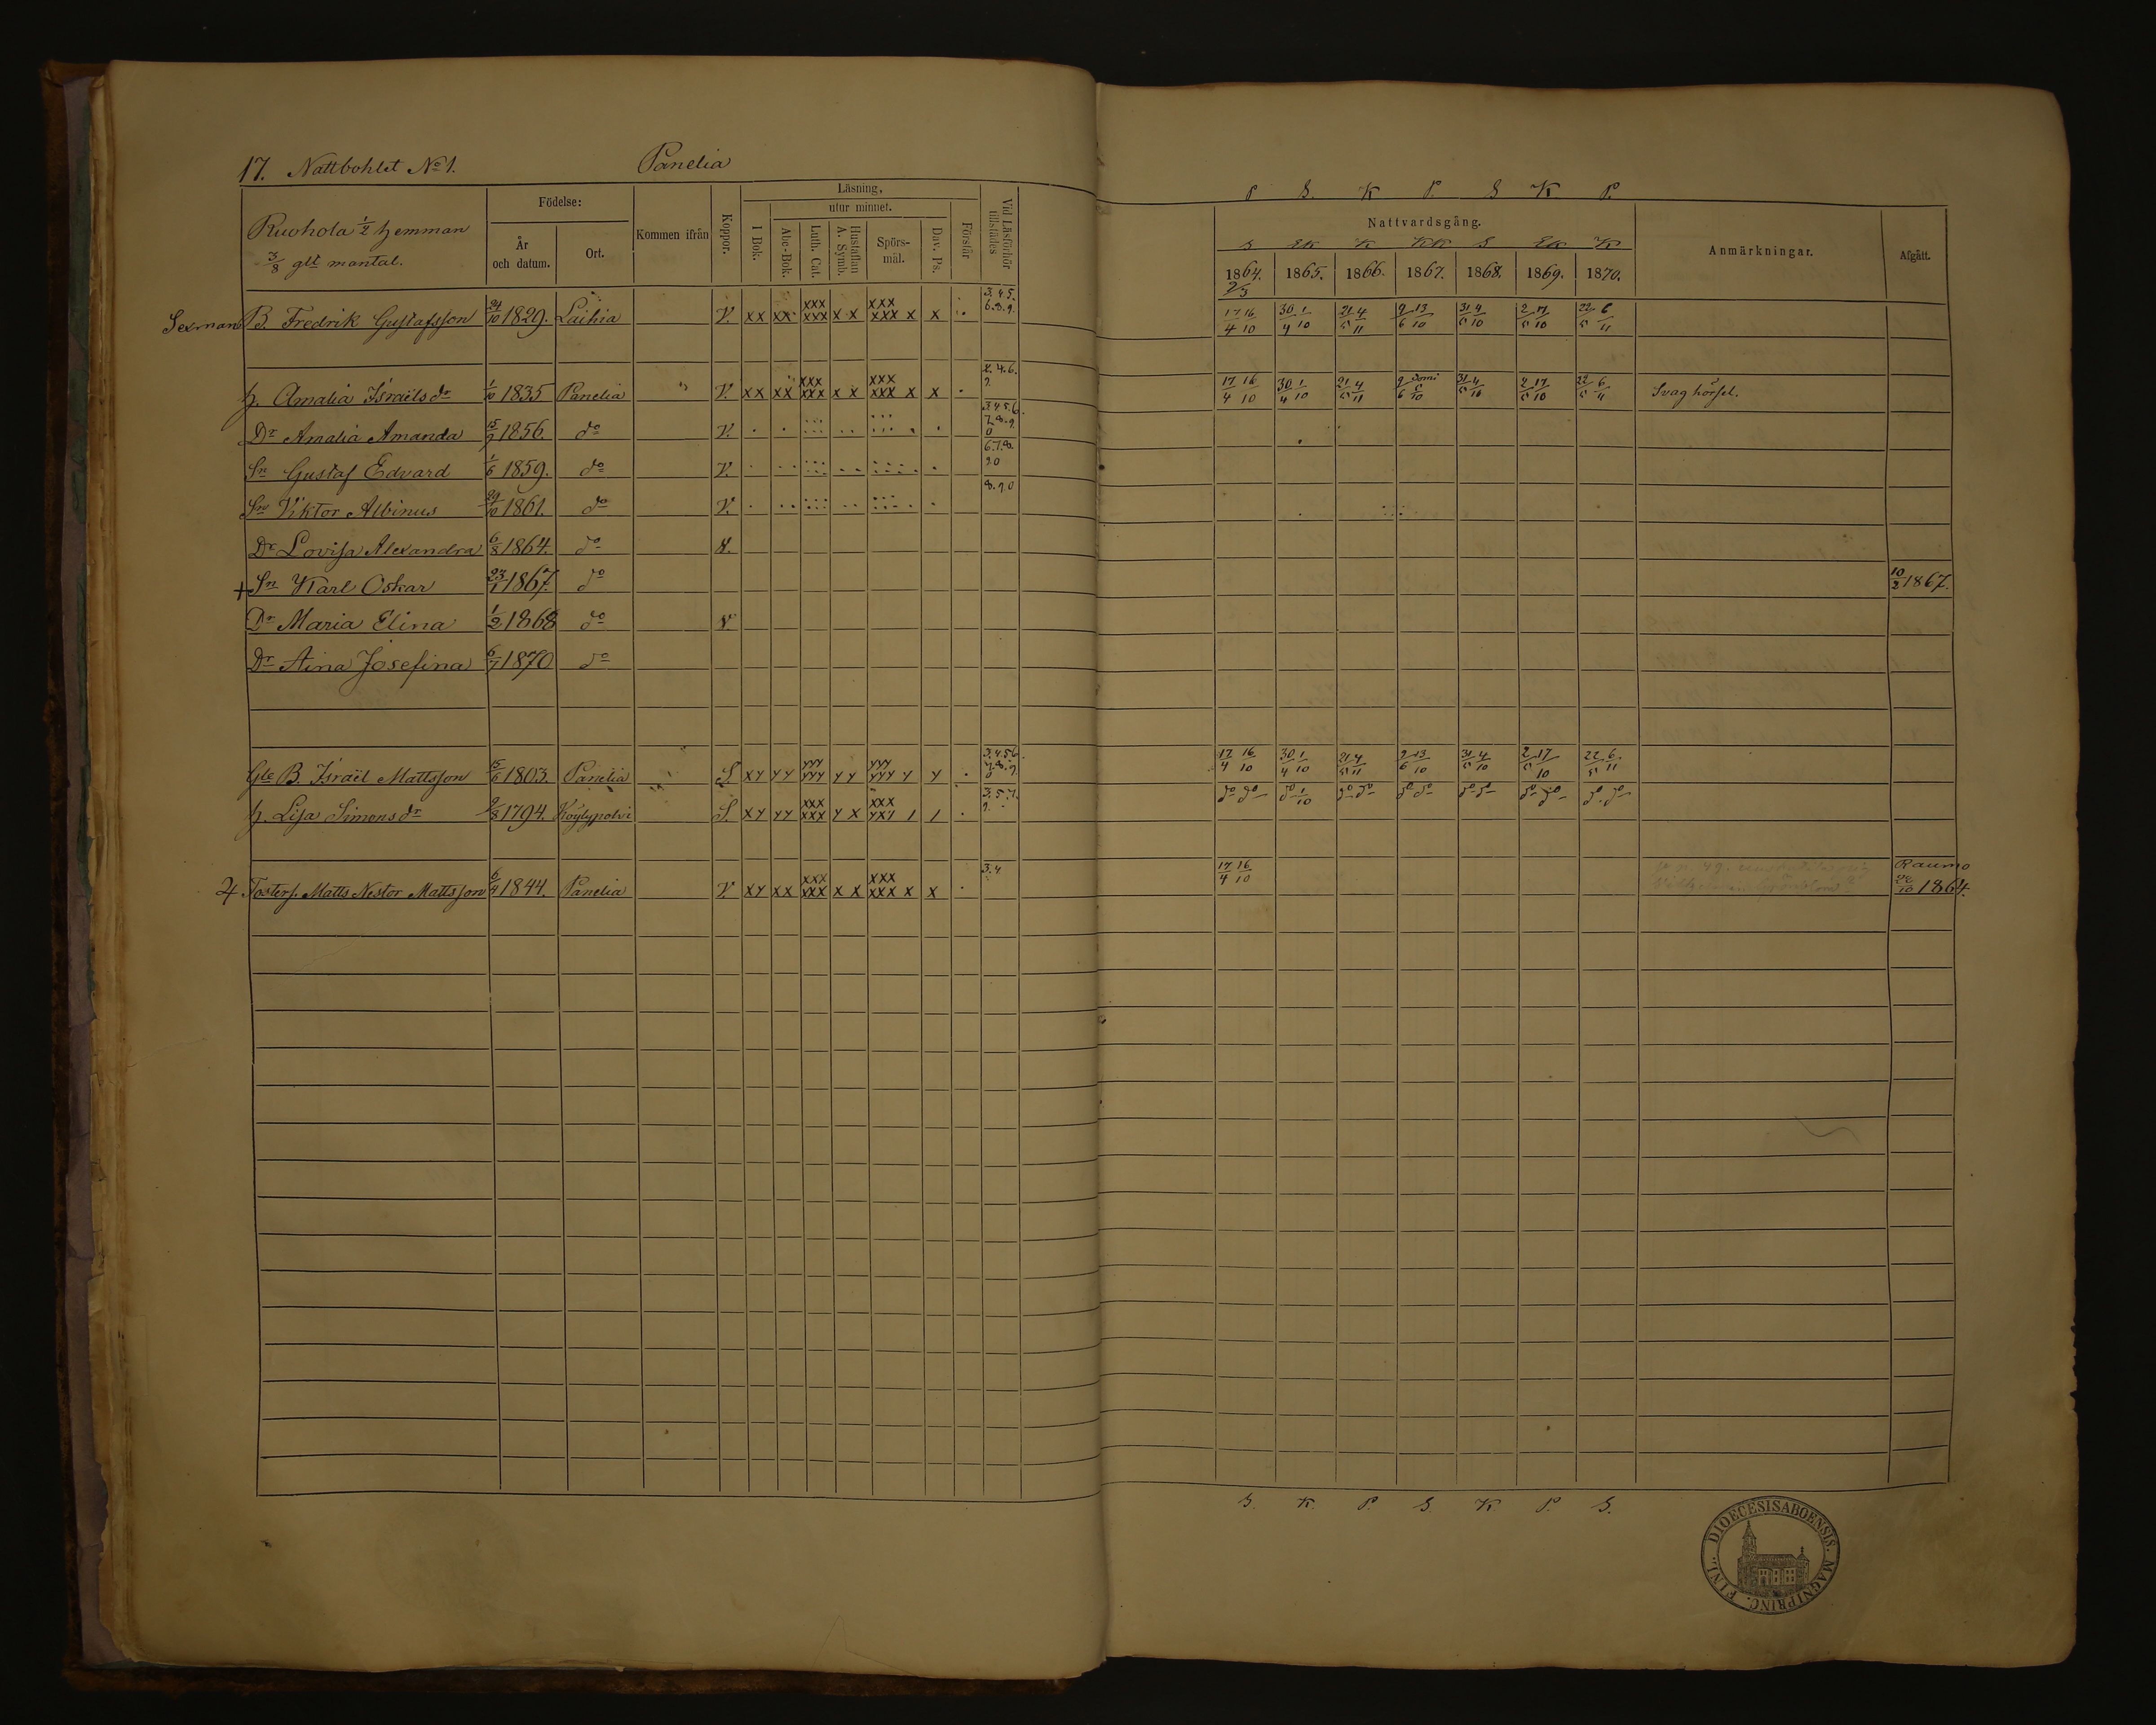 17. Nattbohlet No 1. Panelia
P S. K P. S K P.
Ruohola 1/2 hemman
3/8 glt mantal.
Födelse:
År och datum.
Ort.
Kommen ifrån
Koppor.
Läsning.
utur minnet.
I Bok.
Abc-Bok.
Luth. Cat.
Hustaflan A. Symb.
Spörs-mål.
Dav. Ps.
Förstår
Vid Läsförhör tillstädes
Nattvardsgång.
S EK K KK S EK K
1864. 1865. 1866. 1867. 1868. 1869. 1870.
Anmärkningar.
Afgått.
Sexman B. Fredrik Gustafsson 24/10 1829. Laihia V. xx xx xxx xxx x x xxx xxx x x 3.4.5. 6.8.9. 17/4 16/10 30/4 1/10 21/5 4/11 9/6 13/10 31/5 4/10 2/5 17/10 22/5 6/11
h. Amalia Israëls dr 1/10 1835 Panelia V. xx xx xxx xxx x x xxx xxx x x 2.4.6. 9. 17/4 16/10 30/4 1/10 21/5 4/11 9/6 6/10 31/5 4/10 2/5 17/10 22/5 6/11 Svag hörsel.
Dr Amalia Amanda 15/9 1856. do V. 3.4.5.6. 7.8.9. 0
Sn Gustaf Edvard 1/6 1859. do V. 6.7.8. 9.0
Sn Viktor Albinus 29/10 1861. do V. 8.9.0
Dr Lovisa Alexandra 6/8 1864. do V.
+ Sn Karl Oskar 23/1 1867. do 10/2 1867.
Dr Maria Elina 1/2 1868 do v.
Dr Aina Josefina 6/7 1870 do
Gle B. Israël Mattsson 15/6 1803. Panelia S. xy yy yyy yyy y y yyy yyy y y 3.4.5.6. 7.8.9. 0 17/4 16/10 30/4 1/10 21/5 4/11 9/6 13/10 31/5 4/10 2/5 17/10 22/5 6/11
h. Lisa Simons dr 9/8 1794. Köylypolvi S. xy yy xxx xxx y x xxx yxy / / 3.5.7. 9. do do do 1/10 do do do do do do do do do do
Fosters. Matts Nestor Mattsson 6/4 1844. Panelia V. xy xx xxx xxx x x xxx xxx x x 3.4 17/4 16/10 Raumo 22/10 1864.
S. K. P. S K P. S.
DIOECESIS ABOENSIS. MAGNI PRINC. FINL.